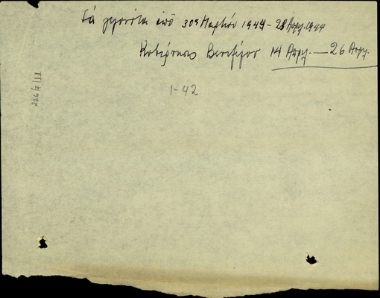 Τά γεγονότα από 30ης Μαρτίου 1944 - 28 Απρ. 1944
Κυβέρνησις Βενιζέλου 14 Απρ. — 26 Απρ.
1-42